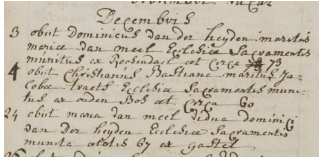 Decembris
3 obiit dominicus van der heyden maritus
maria van meel Ecclesia Sacramentis
munitus ex Rosendael et circa 73
4 obiit Christianus Bastiane maritus Ja-
coba traets Ecclesia Sacramentis muni-
tus ex ouden Bos et circa 60
24 obiit maria van meel vidua dominici
van der heyden Ecclesia Sacramentis
munita ætatis 67 ex gastel